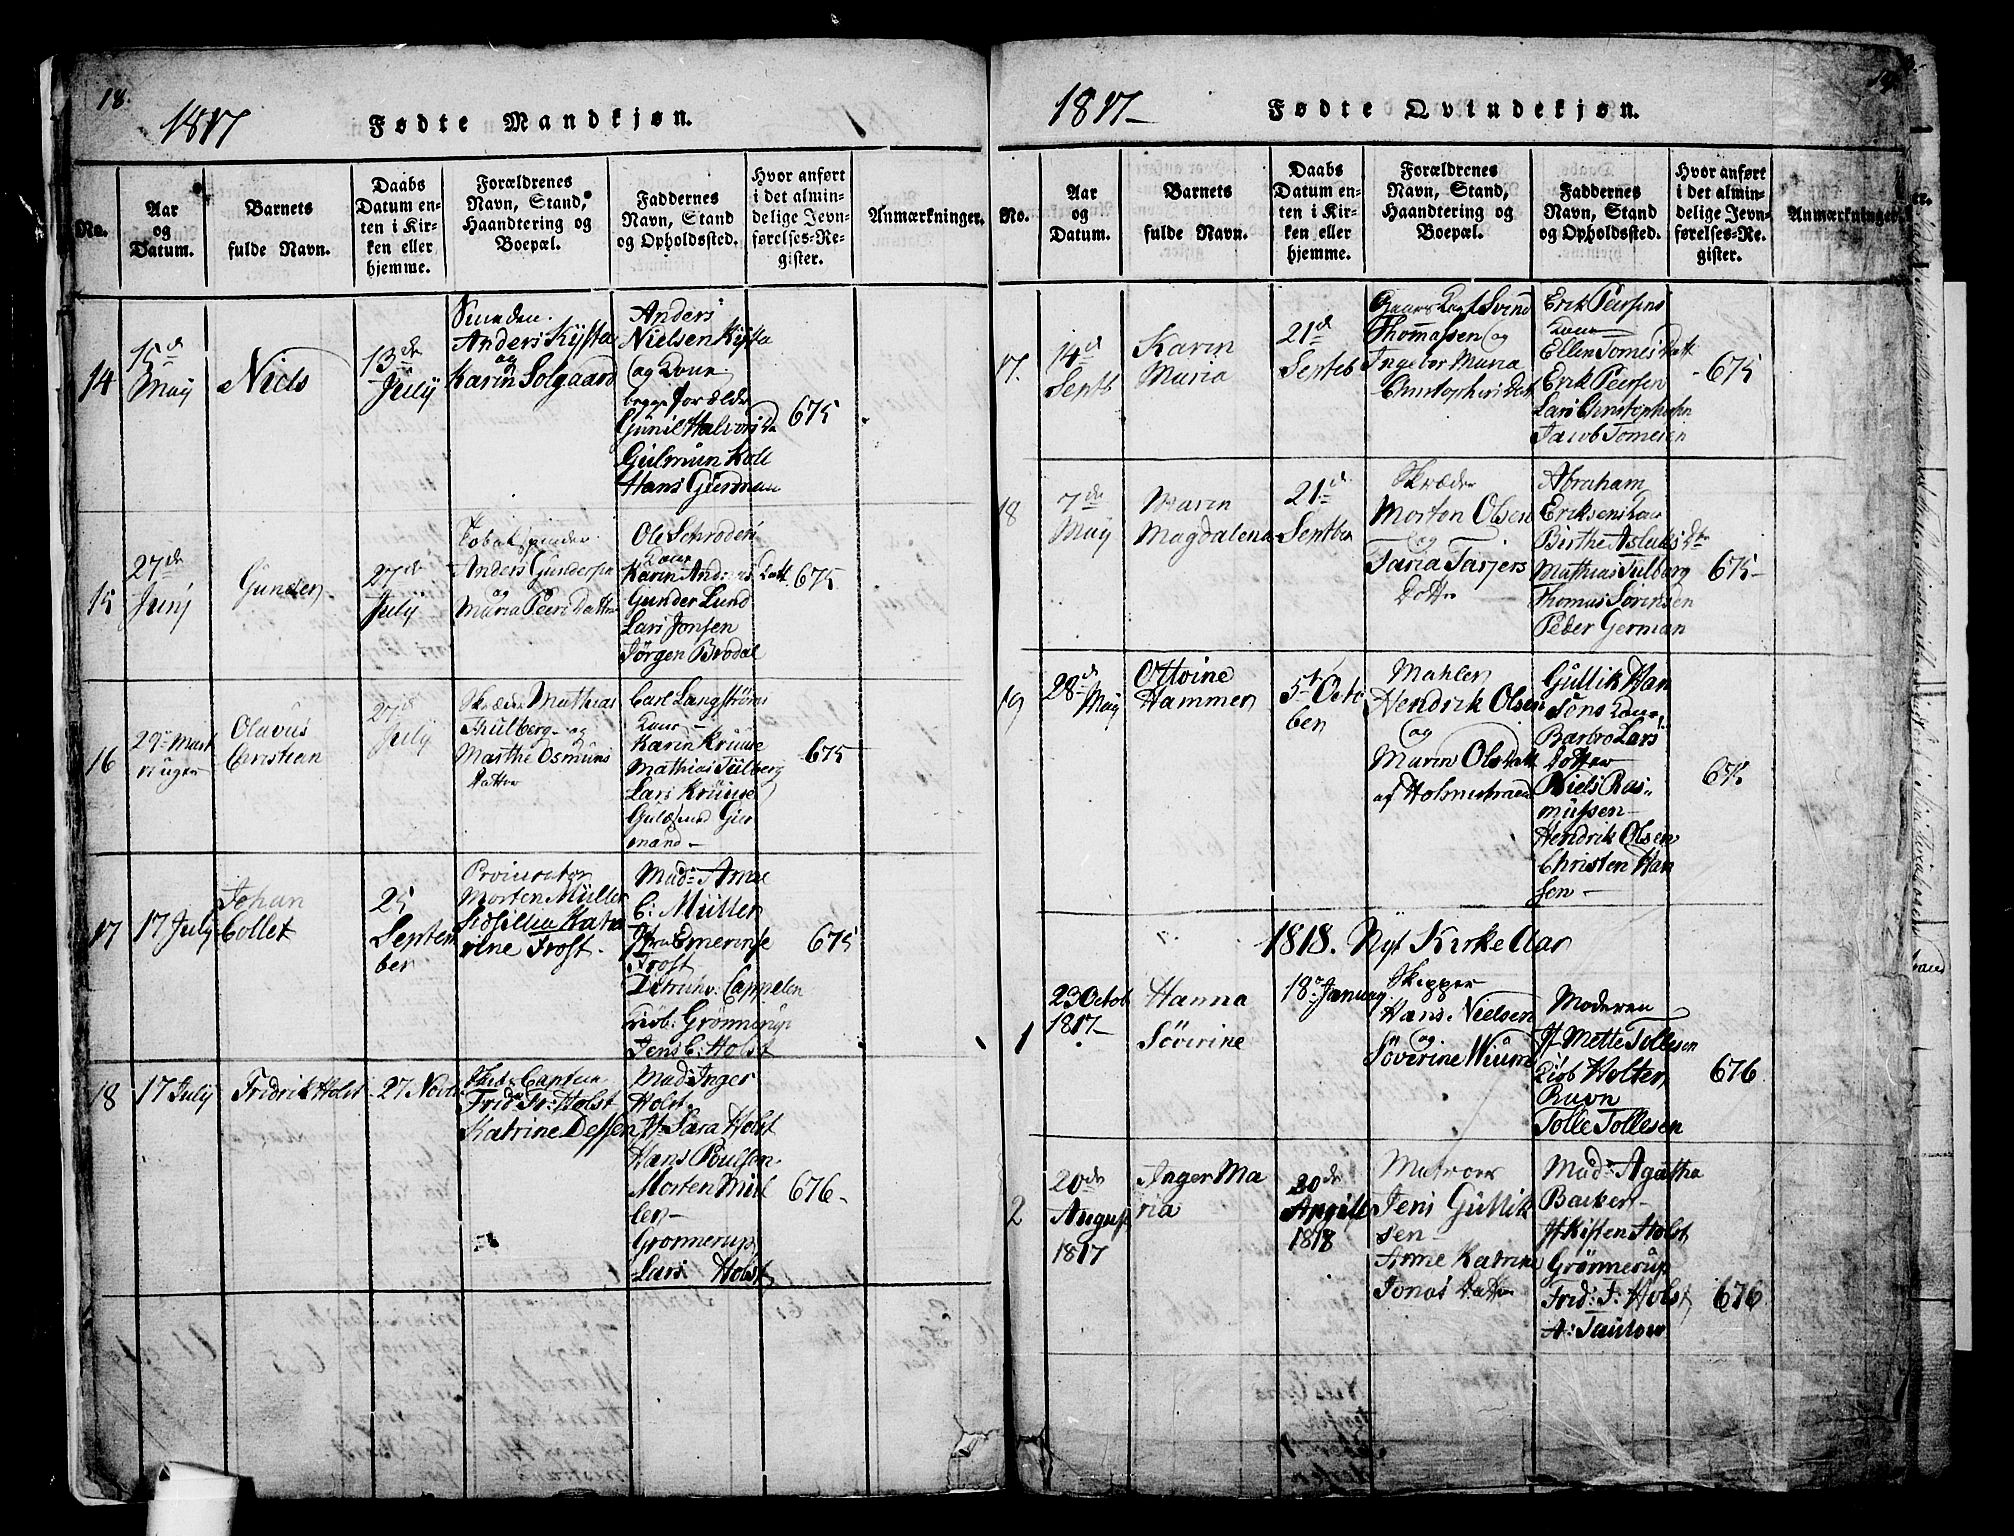 18.
1817
Fødte Mandkjøn.
No.
Aar
og
Datum.
Barnets
fulde Navn.
Daabs
Datum en-
ten i Kir-
ken eller
hjemme.
Forældrenes
Navn, Stand,
Haandtering og
Boepæl.
Faddernes
Navn, Stand
og Opholdssted.
Hvor anført
i det almin-
delige Jevn-
førelses-Re-
gister.
Anmærkninger.
14
15d
May
Niels
13de
July
Anders Kysta
og
Karin Solgaard
Anders
Nielsen Kysta
og Kone
begge forældre
Gunil Halvorsda
Gulmun Koll
Hans Gurdman
675
15
27de
Junj
Gunder
27de
July
Tobakspinder
Anders Gundersen
og
Maria Peers Datter
Ole Schroders
Kone
Karin Anders Datt.
Gunder Lund
Lars Jonsen
Jørgen Brodal
675
16
29 Mart
Olavus
Christian
27d
July
Skræder Mathias
Thulberg og
Marthe Osmuns
Datter
Carl Langstrøms
Kone
Karin Kruuse
Mathias Tulberg
Lars Kruuse
Gulmund Gur
mand
675
17
17 July
Johan
Collet
25
Septem
ber
Procurator
Morten Müller
Sidsillia Kath
rine Frost
Mad: Anne
C: Müller
Jfr. Emerense
Frost
Didrich v. Cappelen
Grønnerup
Jens C: Holst
675
18
17 July
Fridrik Holst
27 Nov
Captein
Frid: Fr: Holst
Katrine Dessen
Mad: Inger
Holst
Jf: Sara Holst
Hans Poulsen
Morten Mül
ler
Grønnerup
Lars Holst
676
1817
Fødte Qvindekjøn.
No.
Aar
og
Datum.
Barnets
fulde Navn.
Daabs
Datum en-
ten i Kir-
ken eller
hjemme.
Forældrenes
Navn, Stand,
Haandtering og
Boepæl.
Faddernes
Navn, Stand
og Opholdssted.
Hvor anført
i det almin-
delige Jevn-
førelses-Re-
gister.
Anmærkninger.
17.
14d
Septb
Karen
Maria
21d
Septeb
Svend
Thomassen og
Ingebor Maria
Christophers Datt
Erik Peersens
Kone
Ellen Tomes Datt
Erik Peersen
Lars Christophersen
Jacob Tomesen
675
18
7de
May
Maren
Magdalena
21d
Septber
Skræder
Morton Olsen
og
Taria Tarjers
Dotter
Abraham
Eriksens Kone
Birthe Aslaks Dtr
Mathias Tulberg
Thomas Sørensen
Peder German
675
19
28d
May
Ottoine
Hammer
5t Octo
ber
Mahler
Hendrik Olsen
og
Maren Ols Datt
af Holmestrand
Gullik Han
sons Kone
Barbro Lars
Dotter
Niels Ras-
mussen
Hendrik Olsen
Christen Han
sen
675
1818. Nyt Kirke Aar
1
23 Octob
1817
Hanna
Søvirine
18 Januay
Skipper
Hans Nielsen
og
Soverine Wium
Moderen
Jf Mette Tollesen
Holter
Ravn
Tolle Tollesen
676
2
20de
August
1817
Inger Ma
ria
20de
Aprill
1818
Matroes
Jens Gullik
sen
Anne Katrine
Jonas Datter
Mad: Agatha
Backer
Jf Kisten Holst
Grønnerup
Frid: F: Holst
A: Taulow
676